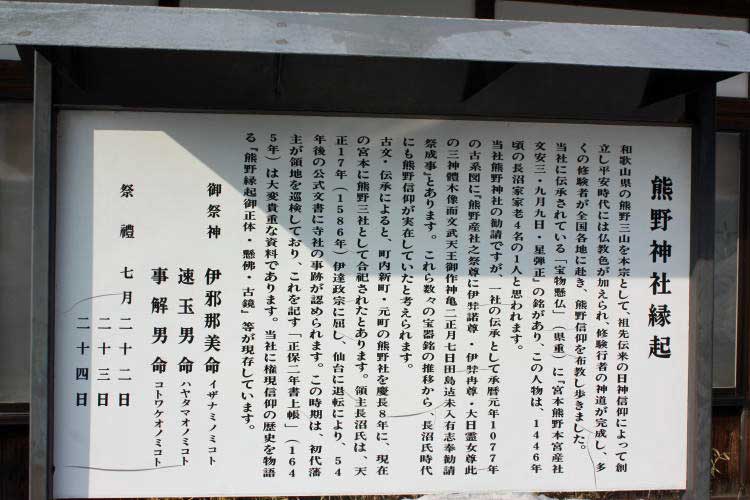 熊野神社縁起
和歌山県の熊野三山を本宗として、祖先伝来の日神信仰によって創
立し平安時代には仏教色が加えられ、修験行者の神道が完成し、多
くの修験者が全国各地に赴き、熊野信仰を布教し歩きました。
当社に伝承されている「宝物懸仏」(県重)に『宮本熊野本宮産社
文安三・九月九日・星弾正』の銘があり、この人物は、1446年
頃の長沼家家老4名の1人と思われます。
当社熊野神社の勧請ですが、一社の伝承として承暦元年1077年
の古系図に『熊野産社之祭尊に伊弉諾尊・伊弉冉尊・大日霊女尊此
の三神體木像面文武天王御作神亀二正月七日田島込未入有志奉勧請
祭成事』とあります。これら数々の宝器銘の推移から、長沼氏時代
にも熊野信仰が実在していたと考えられます。
古文・伝承によると、町内新町・元町の熊野社を慶長8年に、現在
の宮本に熊野三社として合祀されたとあります。領主長沼氏は、天
正17年(1586年)伊達政宗に屈し、仙台に退転により、54
年後の公式文書に寺社の事跡が認められます。この時期は、初代藩
主が領地を巡検しており、これを記す「正保二年書上帳」(164
5年)は大変貴重な資料であります。当社に権現信仰の歴史を物語
る『熊野縁起御正体・懸佛・古鏡』等が現存しています。
御祭神 伊邪那美命 イザナミノミコト
速玉男命 ハヤタマオノミコト
事解男命 コトワケオノミコト
祭禮 七月二十二日
二十三日
二十四日